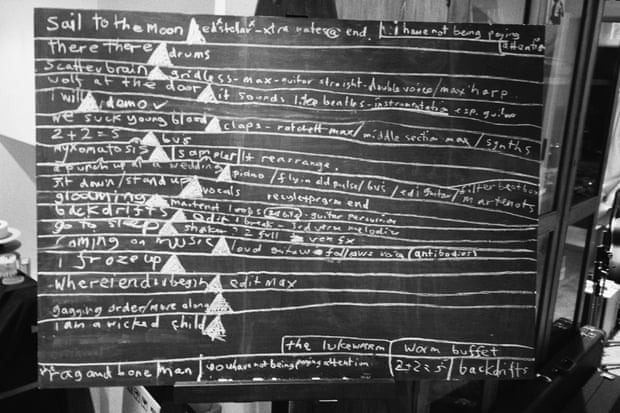 Sail to the Moon edstelar - xtra notes @ end. I have not been paying attention
there there drums
scatterbrain gridless - max - guitar straight - double voice / max harp
wolf at the door it sounds like beatles - instrumentation esp. guitar
i will demo
we suck young blood claps - ratchett max / middle section max / synths
2+2=5 bus
myxomatosis sampler / 1st rearrange.
a punch up at a wedding piano / flyin old pulse / bus / edi guitar / filter beatbox
sit down / stand up vocals recyletprgrm end martenots
gloaming martenot loops guitar percussion
backdrifts edit 3rd verse melodies
go to sleep shaker
coming on music loud follows voice (antibodies)
i froze up
where i end u begin edit max
gagging order / move along
i am a wicked child
the lukewarm worm buffet
rag and bone man you have not being paying attention 2+2=5 / backdrifts